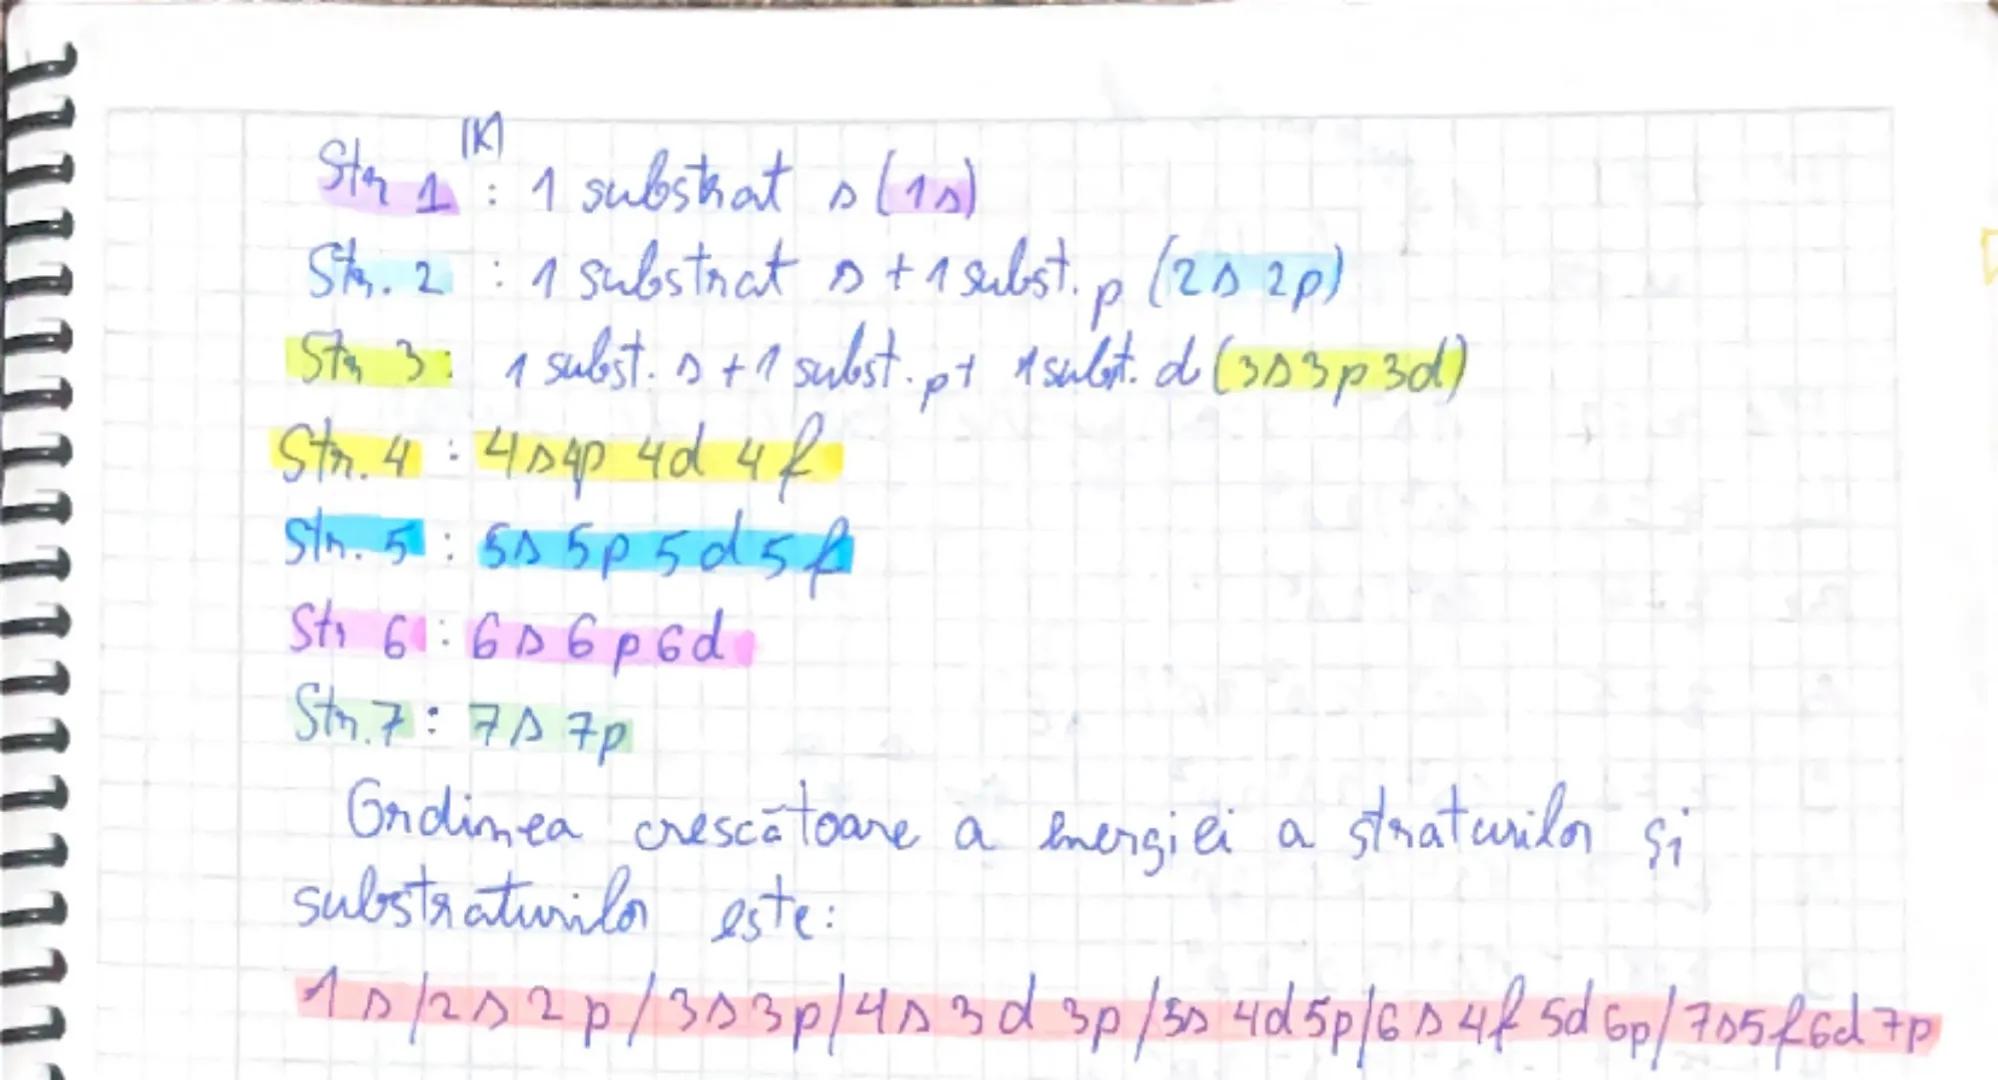 (K)
Str 1 : 1 substrat s (1s)
Str. 2 : 1 substrat s + 1 subst. p (2s 2p)
Str 3: 1 subst. s + 1 subst. p + 1 subst. d (3s3p3d)
Str. 4 : 4s4p 4d 4f
Str. 5 : 5s 5p 5d 5f
Str 6 : 6s 6p 6d
Str. 7 : 7s 7p
Ordinea crescătoare a energiei a straturilor și
substraturilor este:
1s/2s 2p/3s3p/4s 3d 3p/5s 4d5p/6s 4f 5d 6p/7s5f6d7p